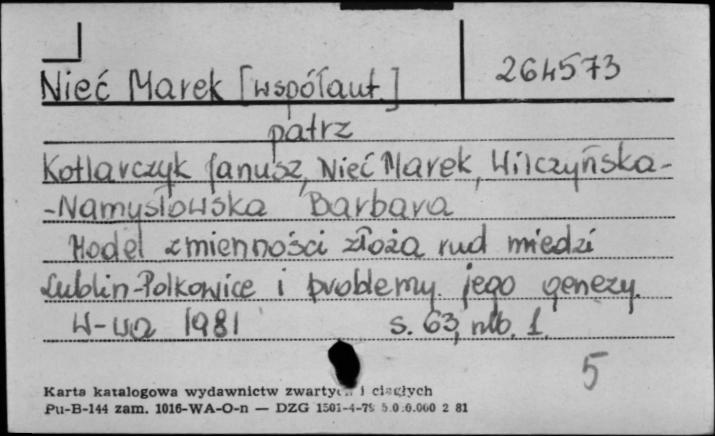 Nieć Marek [współaut.] 264573
patrz
Kotlarczyk Janusz, Nieć Marek, Wilczyńska-
-Namysłowska Barbara
Model zmienności złoża rud miedzi
Lublin-Polkowice i problemy jego genezy.
W-wa 1981 s. 63, nlb. 1.
5
Karta katalogowa wydawnictw zwartych i ciągłych
Pu-B-144 zam. 1016-WA-O-n — DZG 1501-4-79 2 81